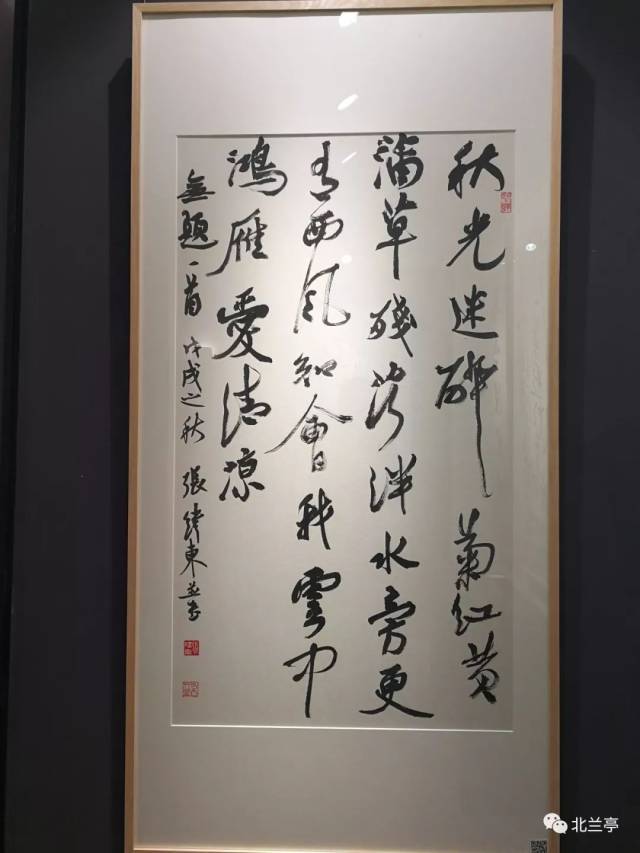 秋光迷醉菊紅黄
蒲草殘落泮水旁更
有西風知會我雲中
鴻雁愛清凉
無題一首 戊戌之秋 張緯東並書
北兰亭